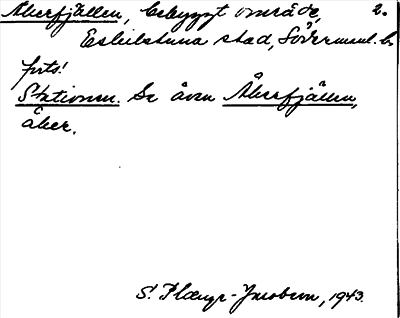 Åkerfjällen, bebyggt område, 2.
Eskilstuna stad, Södermanl. l.
forts!
Stationen. Se även Åkerfjällen,
åker.
S. Plænge-Jacobson, 1943.